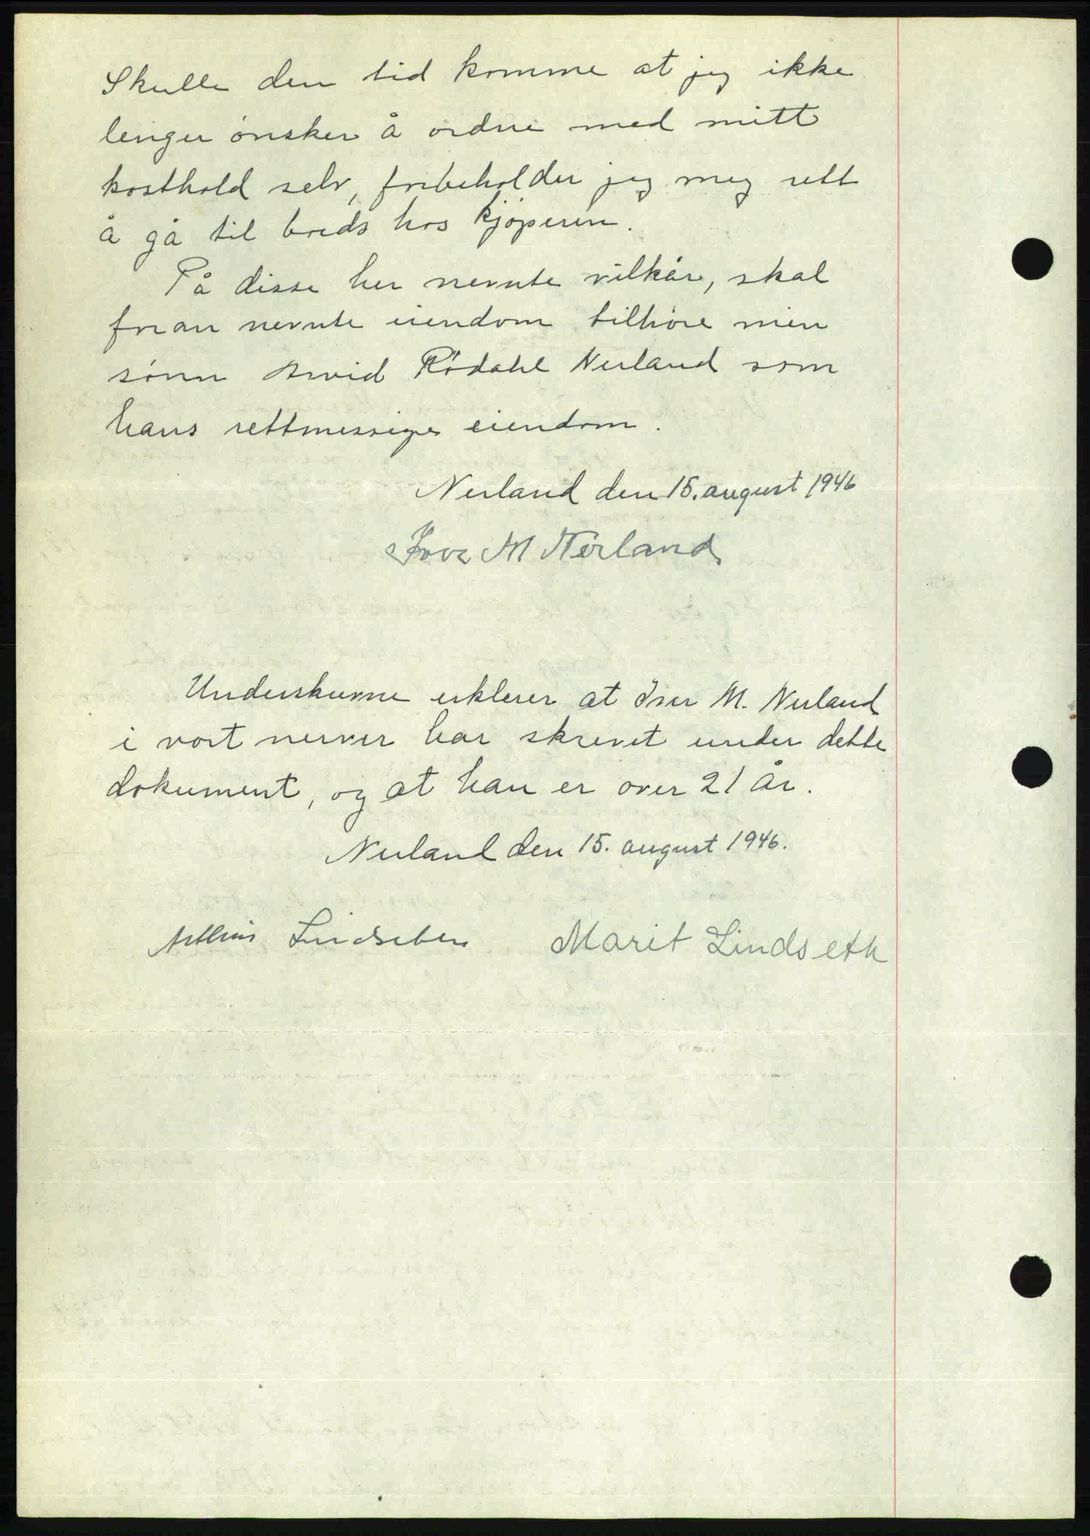 Skulle den tid komme at jeg ikke
lenger ønsker å ordne med mitt
kosthold selv, forbeholder jeg meg rett
å gå til bords hos kjøperen.
På disse her nevnte vilkår, skal
foran nevnte eiendom tilhøre min
sønn Arvid Rødahl Nerland som
hans rettmessige eiendom.
Nerland den 15. august 1946
Iver M Nerland
Underskrevne erklerer at Iver M. Nerland
i vort nerver har skrevet under dette
dokument, og at han er over 21 år.
Nerland den 15. august 1946.
Lindseth Marit Lindseth